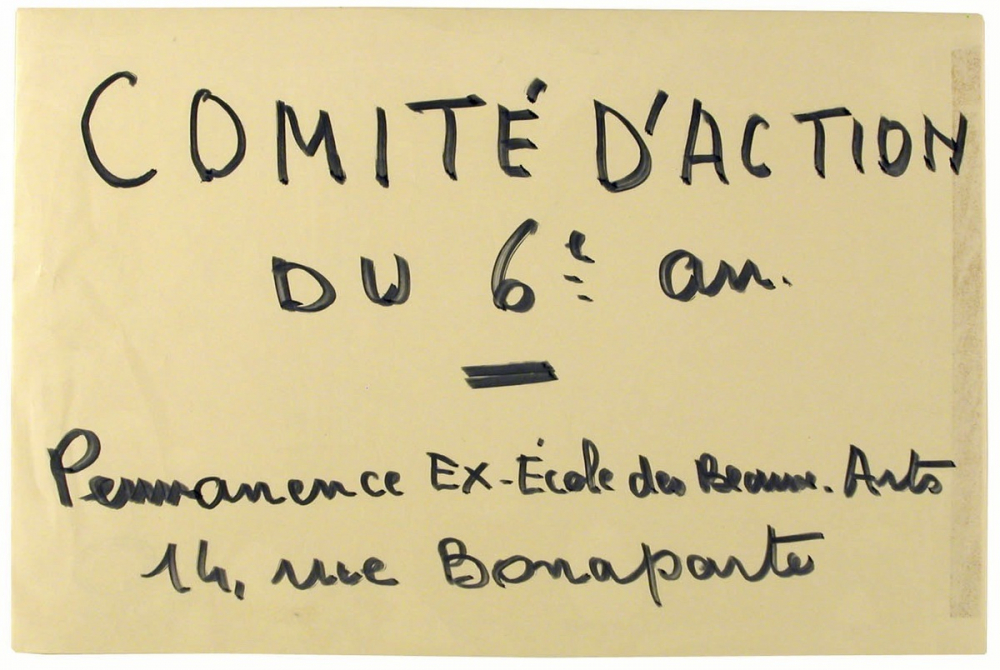 COMITÉ D'ACTION
DU 6e an.
Permanence EX-École des Beaux-Arts
14, rue Bonaparte